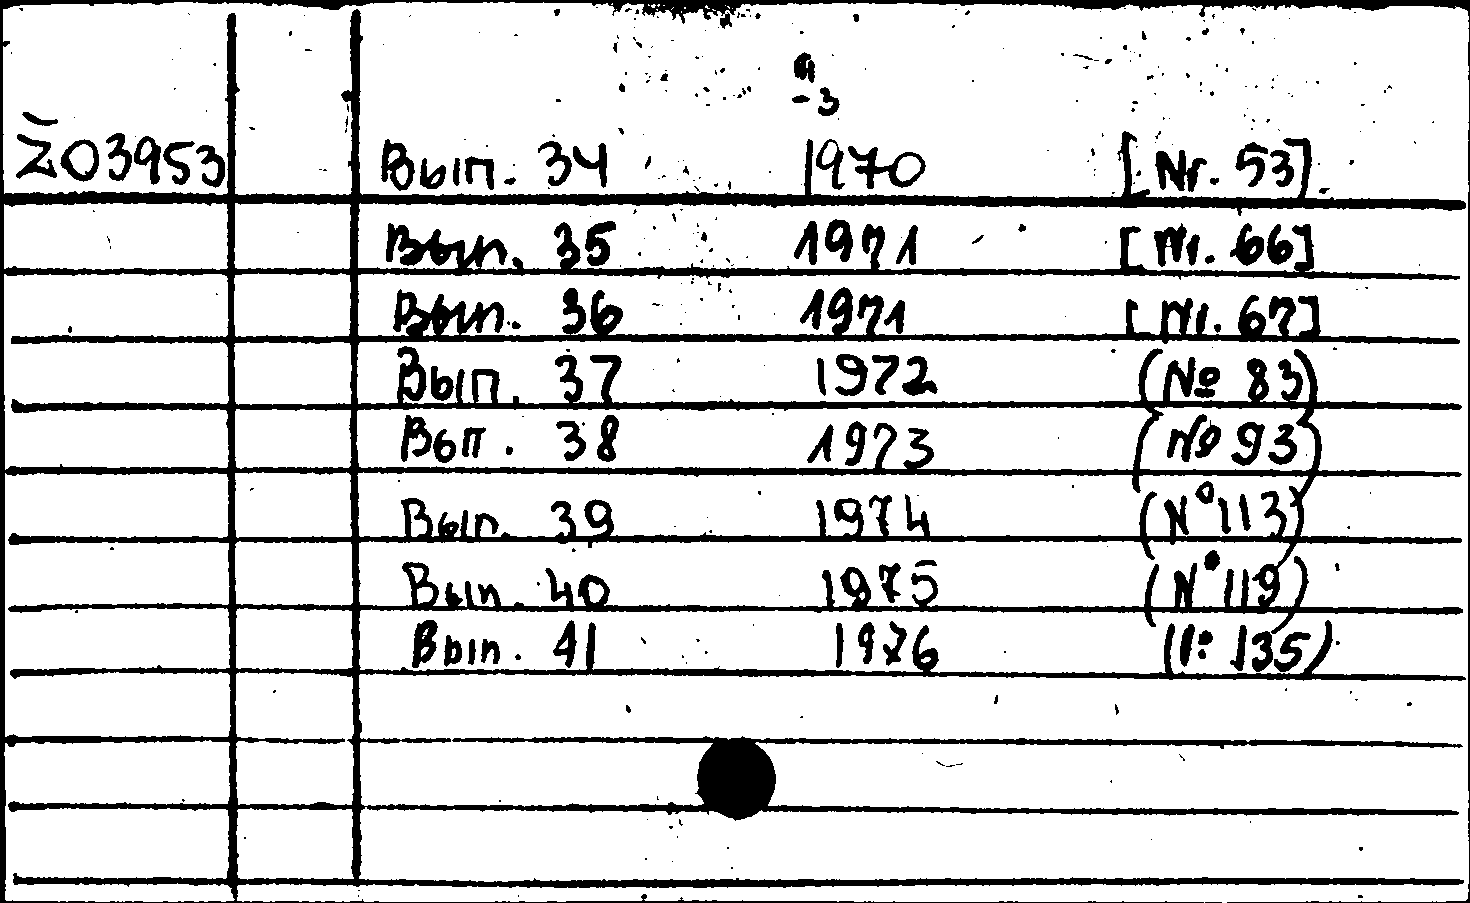 - 3
Ž03953 Вып. 34 1970 [Nr. 53]
Вып. 35 1971 [Nr. 66]
Вып. 36 1971 [Nr. 67]
Вып. 37 1972 (№ 83)
Вып. 38 1973 (№ 93)
Вып. 39 1974 (N° 113)
Вып. 40 1975 (N° 119)
Вып. 41 1976 (№ 135)